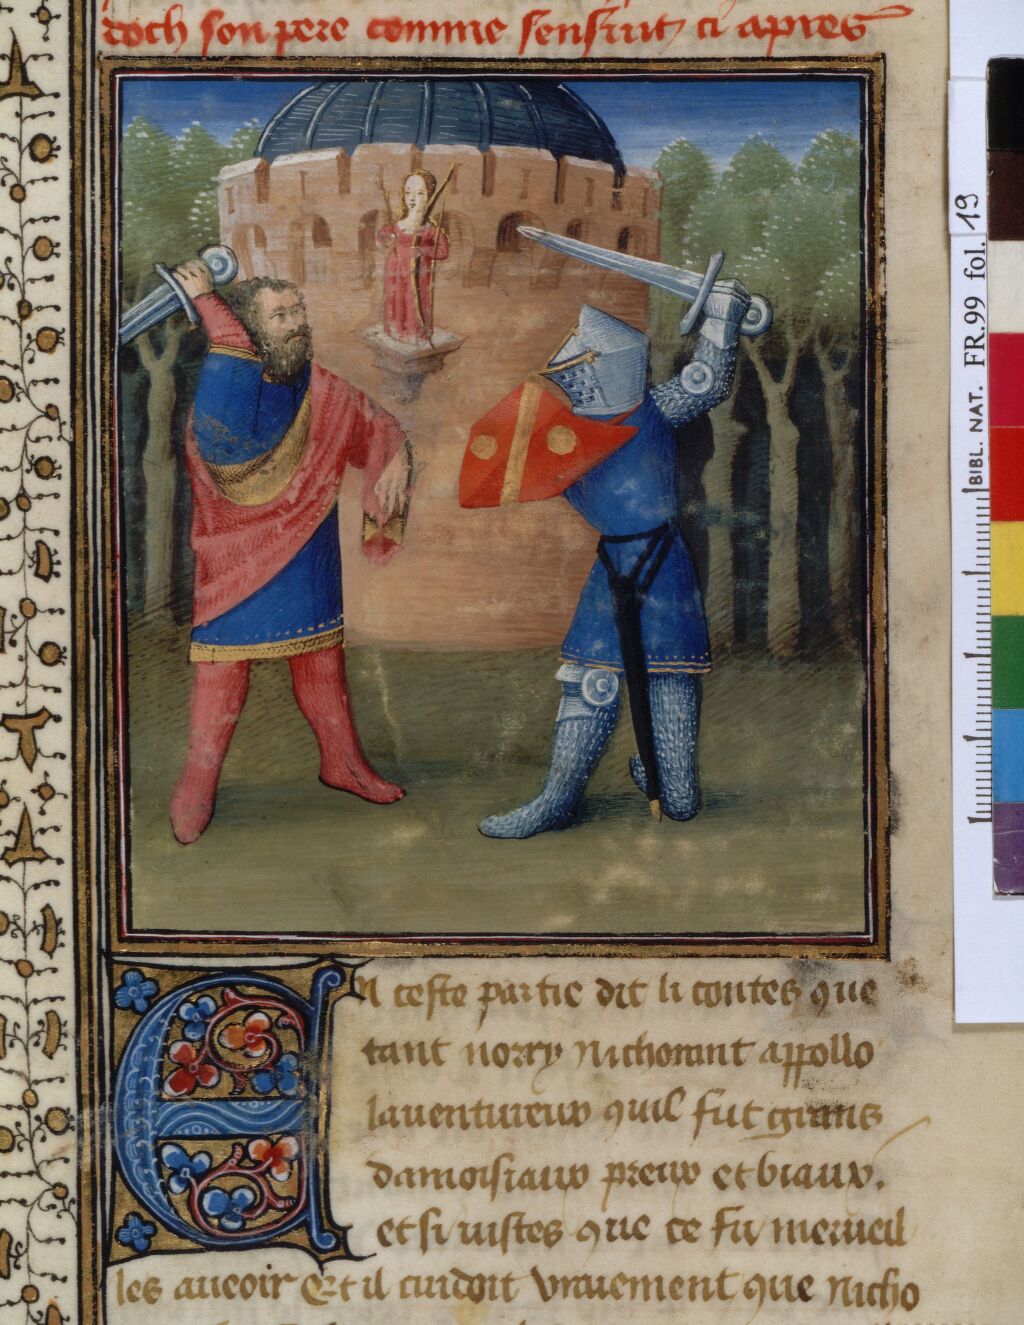 doch son pere comme sensuit ci apres
En ceste partie dit li contes que
tant norry nichorant appollo
lauentureux quil fut grans
damoisiaux preux et biaux.
et si uistes que ce fu merueil
les aueoir Et il cuidoit vraiement que nicho
BIBL. NAT. FR.99 fol. 19